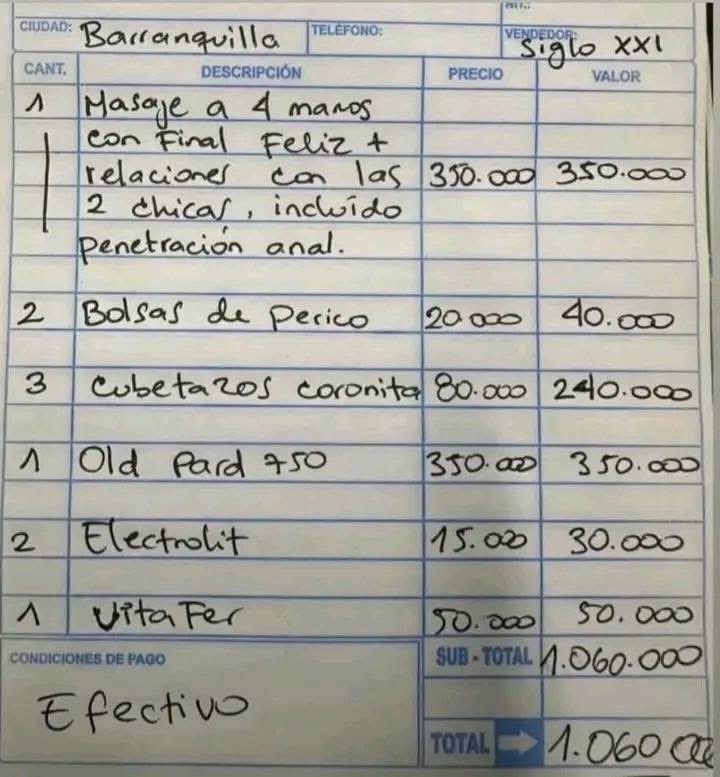 CIUDAD: Barranquilla TELÉFONO: VENDEDOR: Siglo XXI
CANT. DESCRIPCIÓN PRECIO VALOR
1 Masaje a 4 manos
con Final Feliz +
relaciones con las 350.000 350.000
2 chicas, incluído
penetración anal.
2 Bolsas de perico 20.000 40.000
3 cubetazos coronita 80.000 240.000
1 Old Pard 750 350.000 350.000
2 Electrolit 15.000 30.000
1 VitaFer 50.000 50.000
CONDICIONES DE PAGO SUB - TOTAL 1.060.000
Efectivo
TOTAL 1.060.000